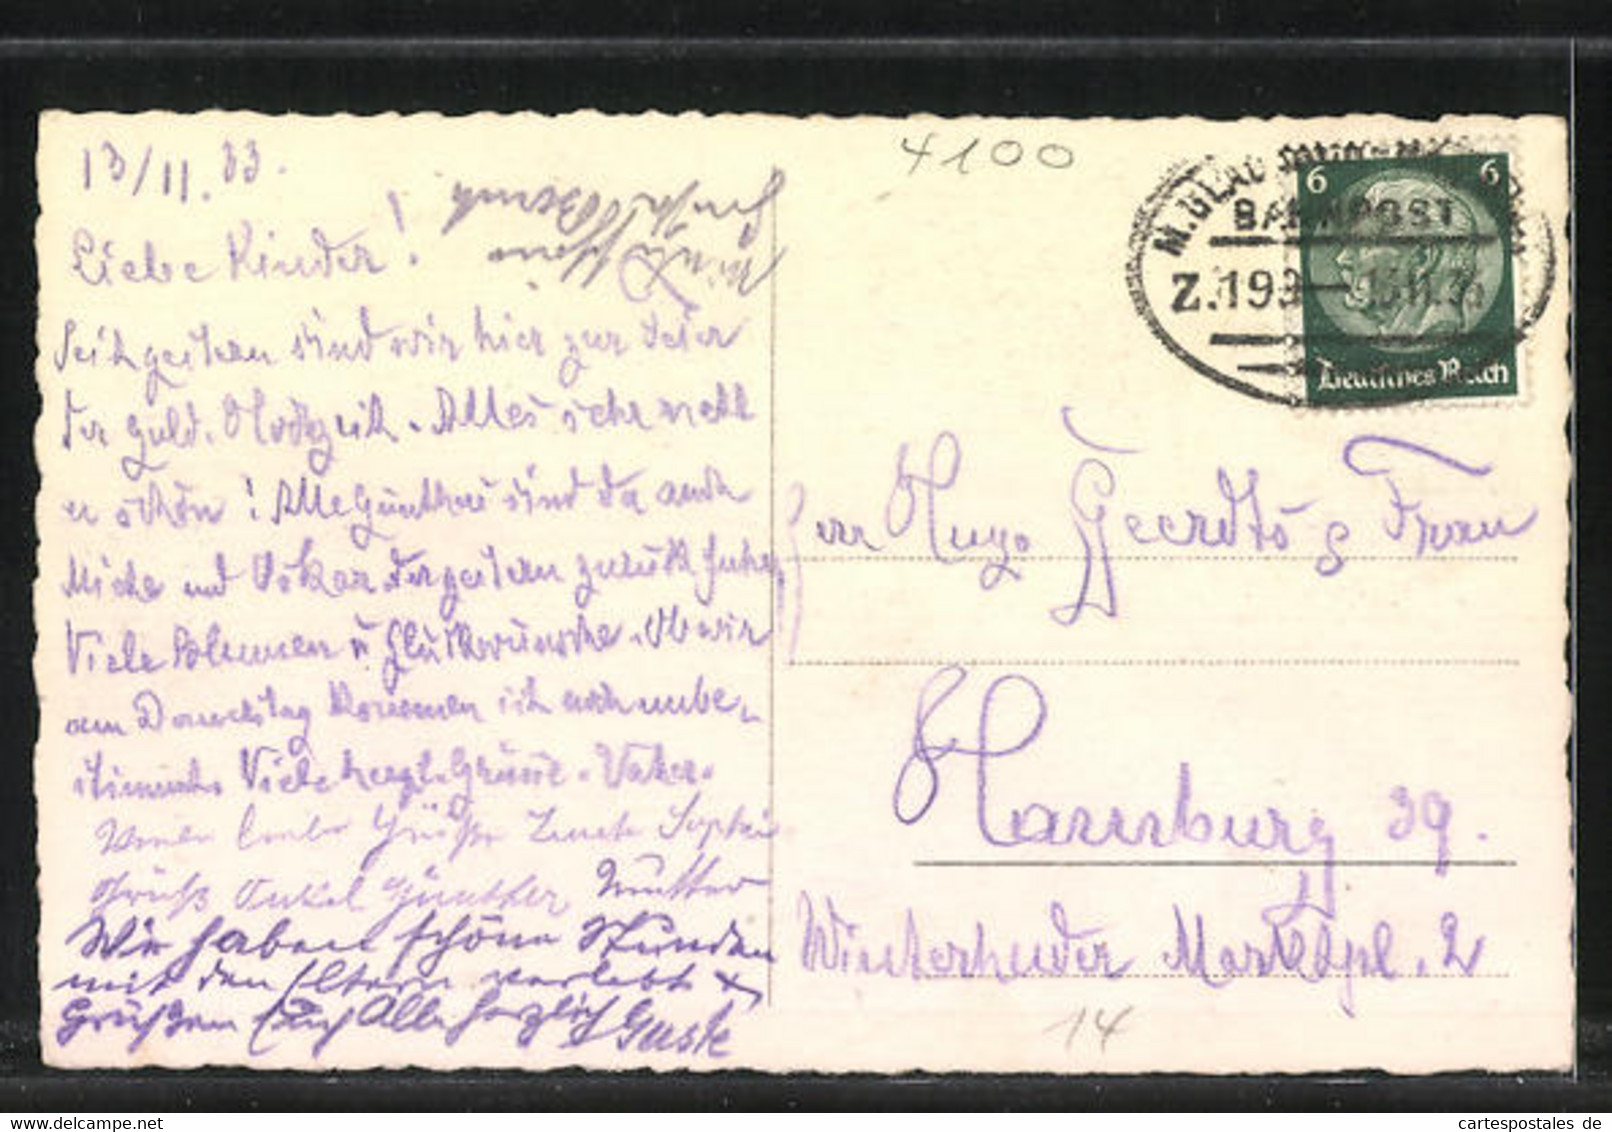 13/11.33.
Liebe Kinder!
Seit gestern sind wir hier zur Feier
der guld. Hochzeit. Alles sehr nett
u schön! Alle Günthers sind da auch
Mieke und Oskar der gestern zurück
Viele Blumen u Glückwünsche. Ob wir
am Donnerstag kommen ist noch unbe-
stimmt. Viele herzl. Grüsse. Vater.
Grüße Tante Sophie
Gruß Onkel Günther Mutter
Wir haben schöne Stunden
mit den Eltern verlebt &
Grüßen Euch Alle herzlich Guste
4100
M.GLAD
BAHNPOST
Z.193 13.11.33
6 6
Deutsches Reich
Herr Hugo Geerdts & Frau
Hamburg 39.
Winterhuder Marktpl. 2
14
cartespostales de